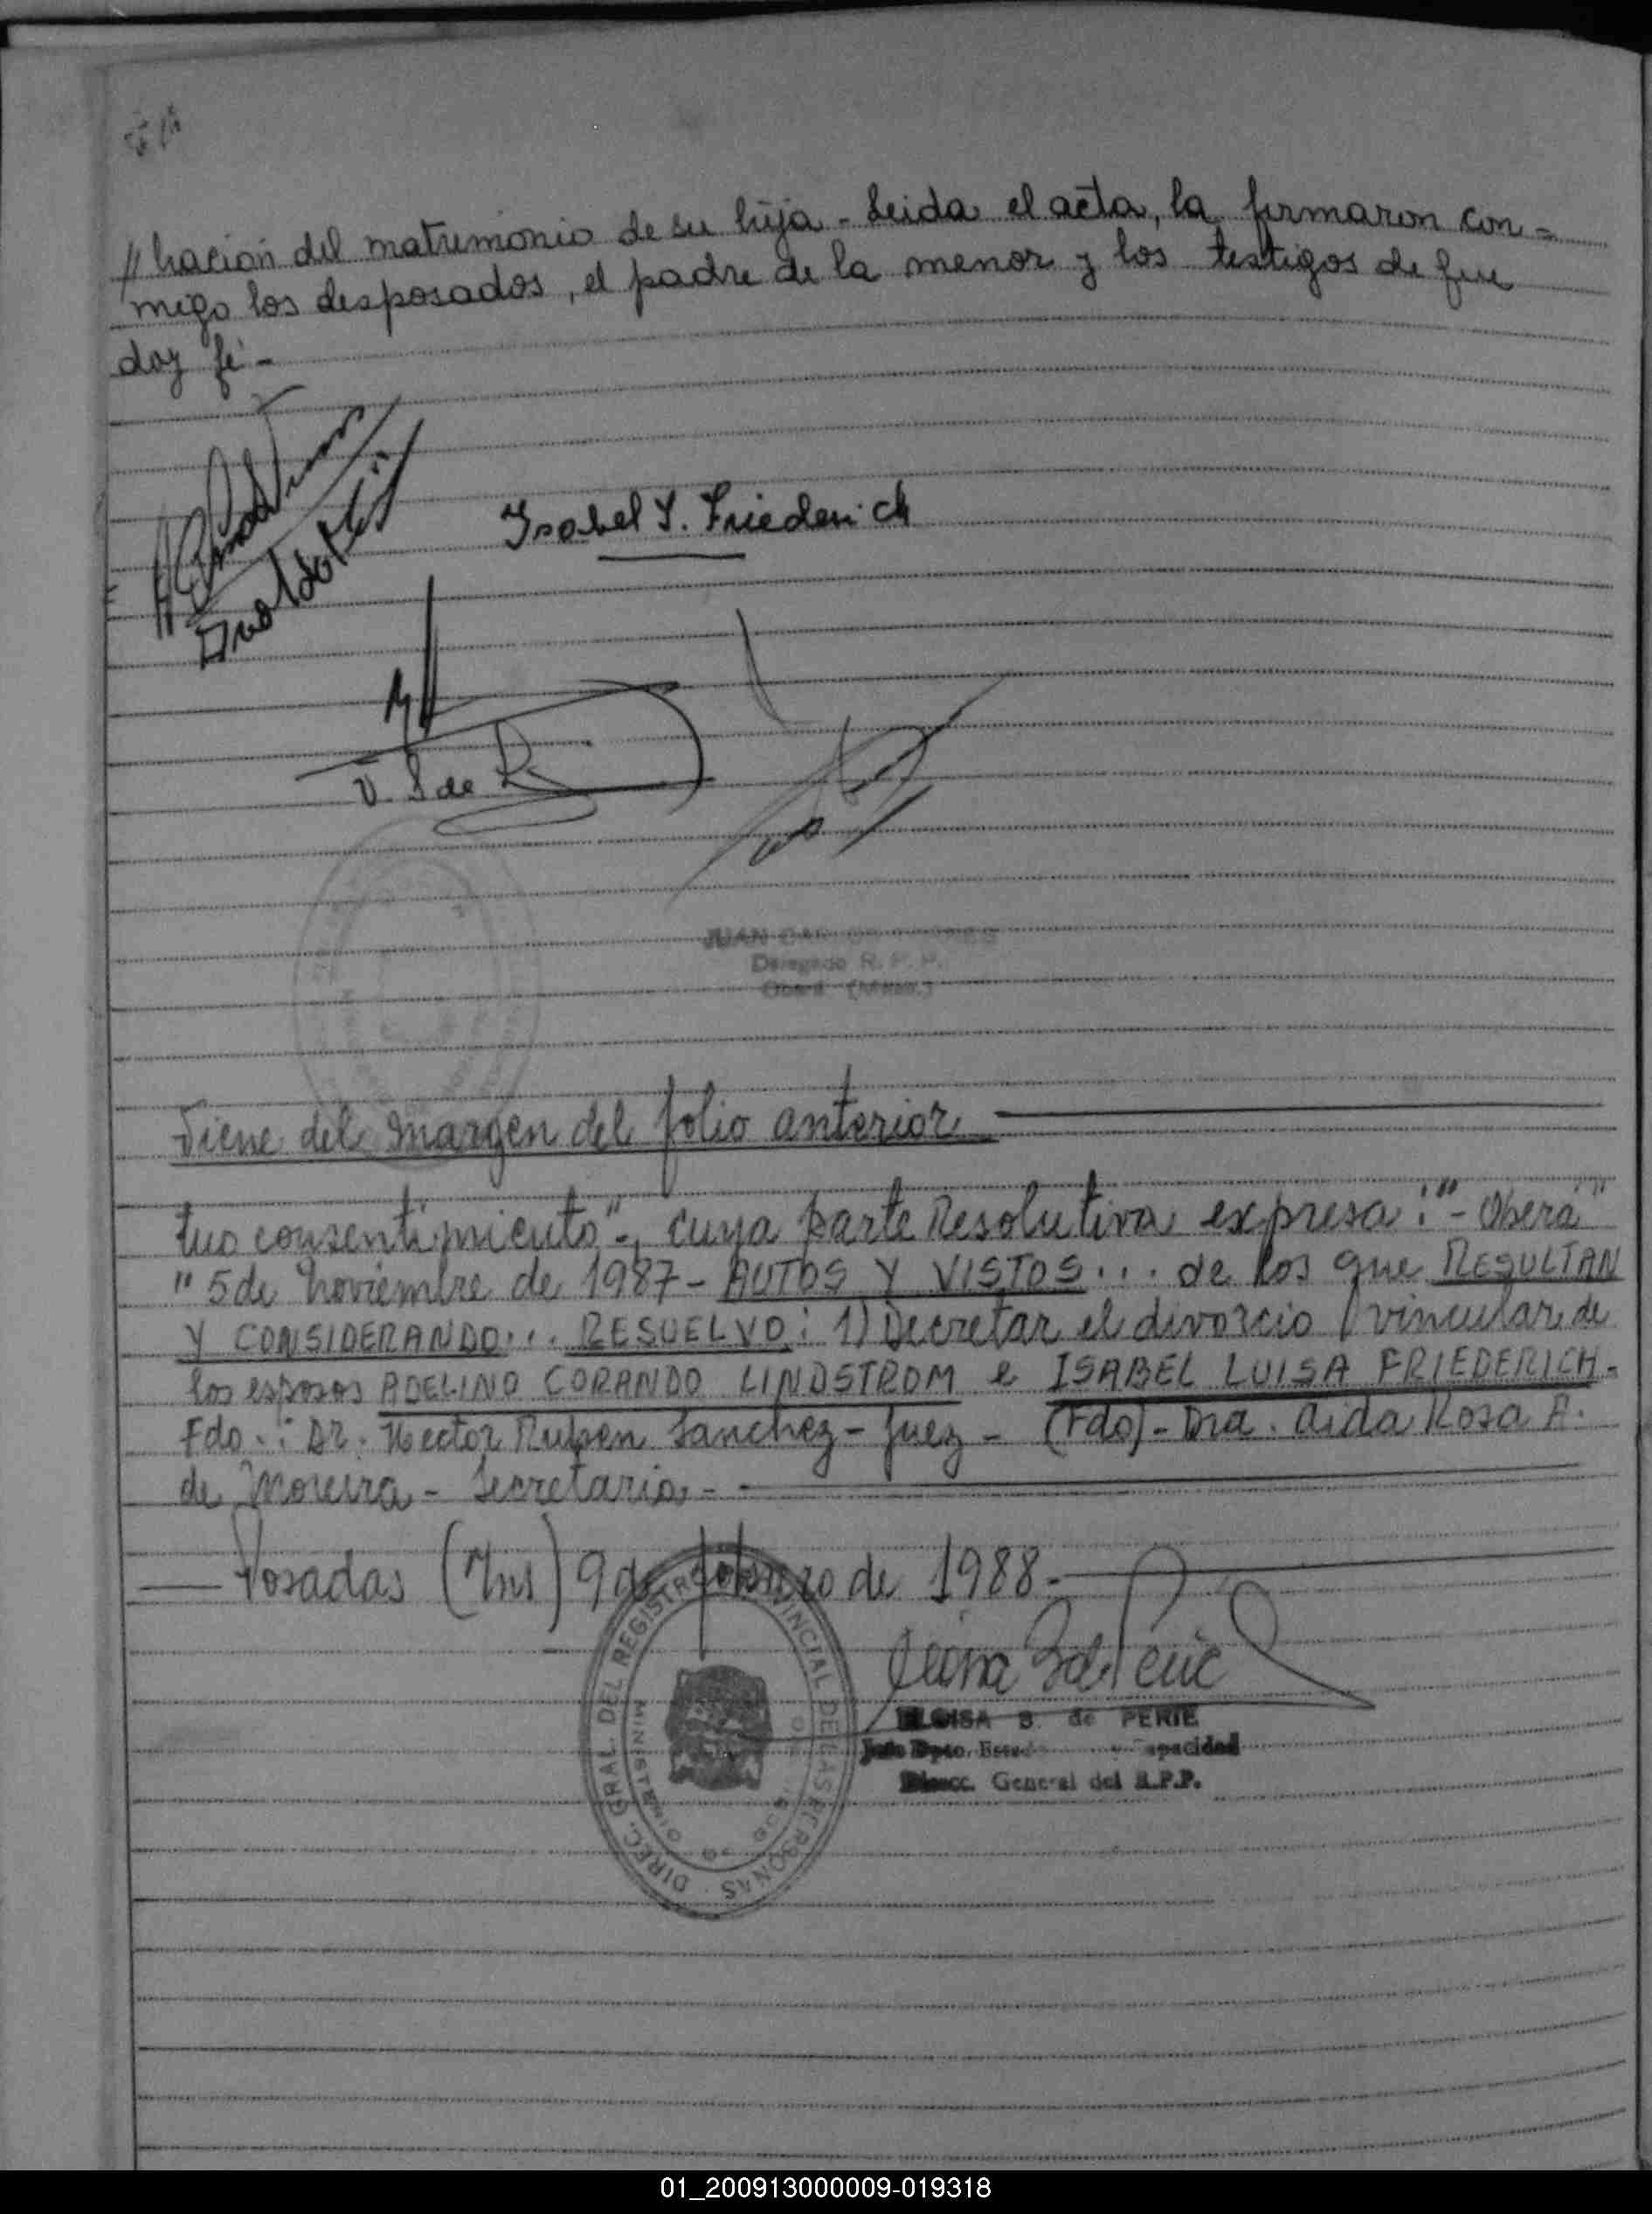 // bación del matrimonio de su hija - Leida el acta, la firmaron con=
migo los desposados, el padre de la menor y los testigos de que
doy fé -
Isabel L. Friederich
V. S de R
JUAN
Delegado R. P. P.
Oberá (Mnes.)
Viene del margen del folio anterior
tuo consentimiento"-, cuya parte Resolutiva expresa: "- Oberá"
" 5 de Noviembre de 1987 - AUTOS Y VISTOS... de los que RESULTAN
Y CONSIDERANDO... RESUELVO: 1) Decretar el divorcio vincular de
los esposos ADELINO CORANDO LINDSTROM e ISABEL LUISA FRIEDERICH-
Fdo.: Dr. Hector Ruben Sanchez - Juez - (Fdo) - Dra. Aida Rosa A.
de Moreira - Secretaria -
Posadas (Mns) 9 de febrero de 1988.-
ELOISA B. de PERIE
Jefe Dpto. Estado y Capacidad
Direcc. General del R.P.P.
DIREC. GRAL. DEL REGISTRO PROVINCIAL DE LAS PERSONAS
MINISTERIO DE GOB
01_200913000009-019318